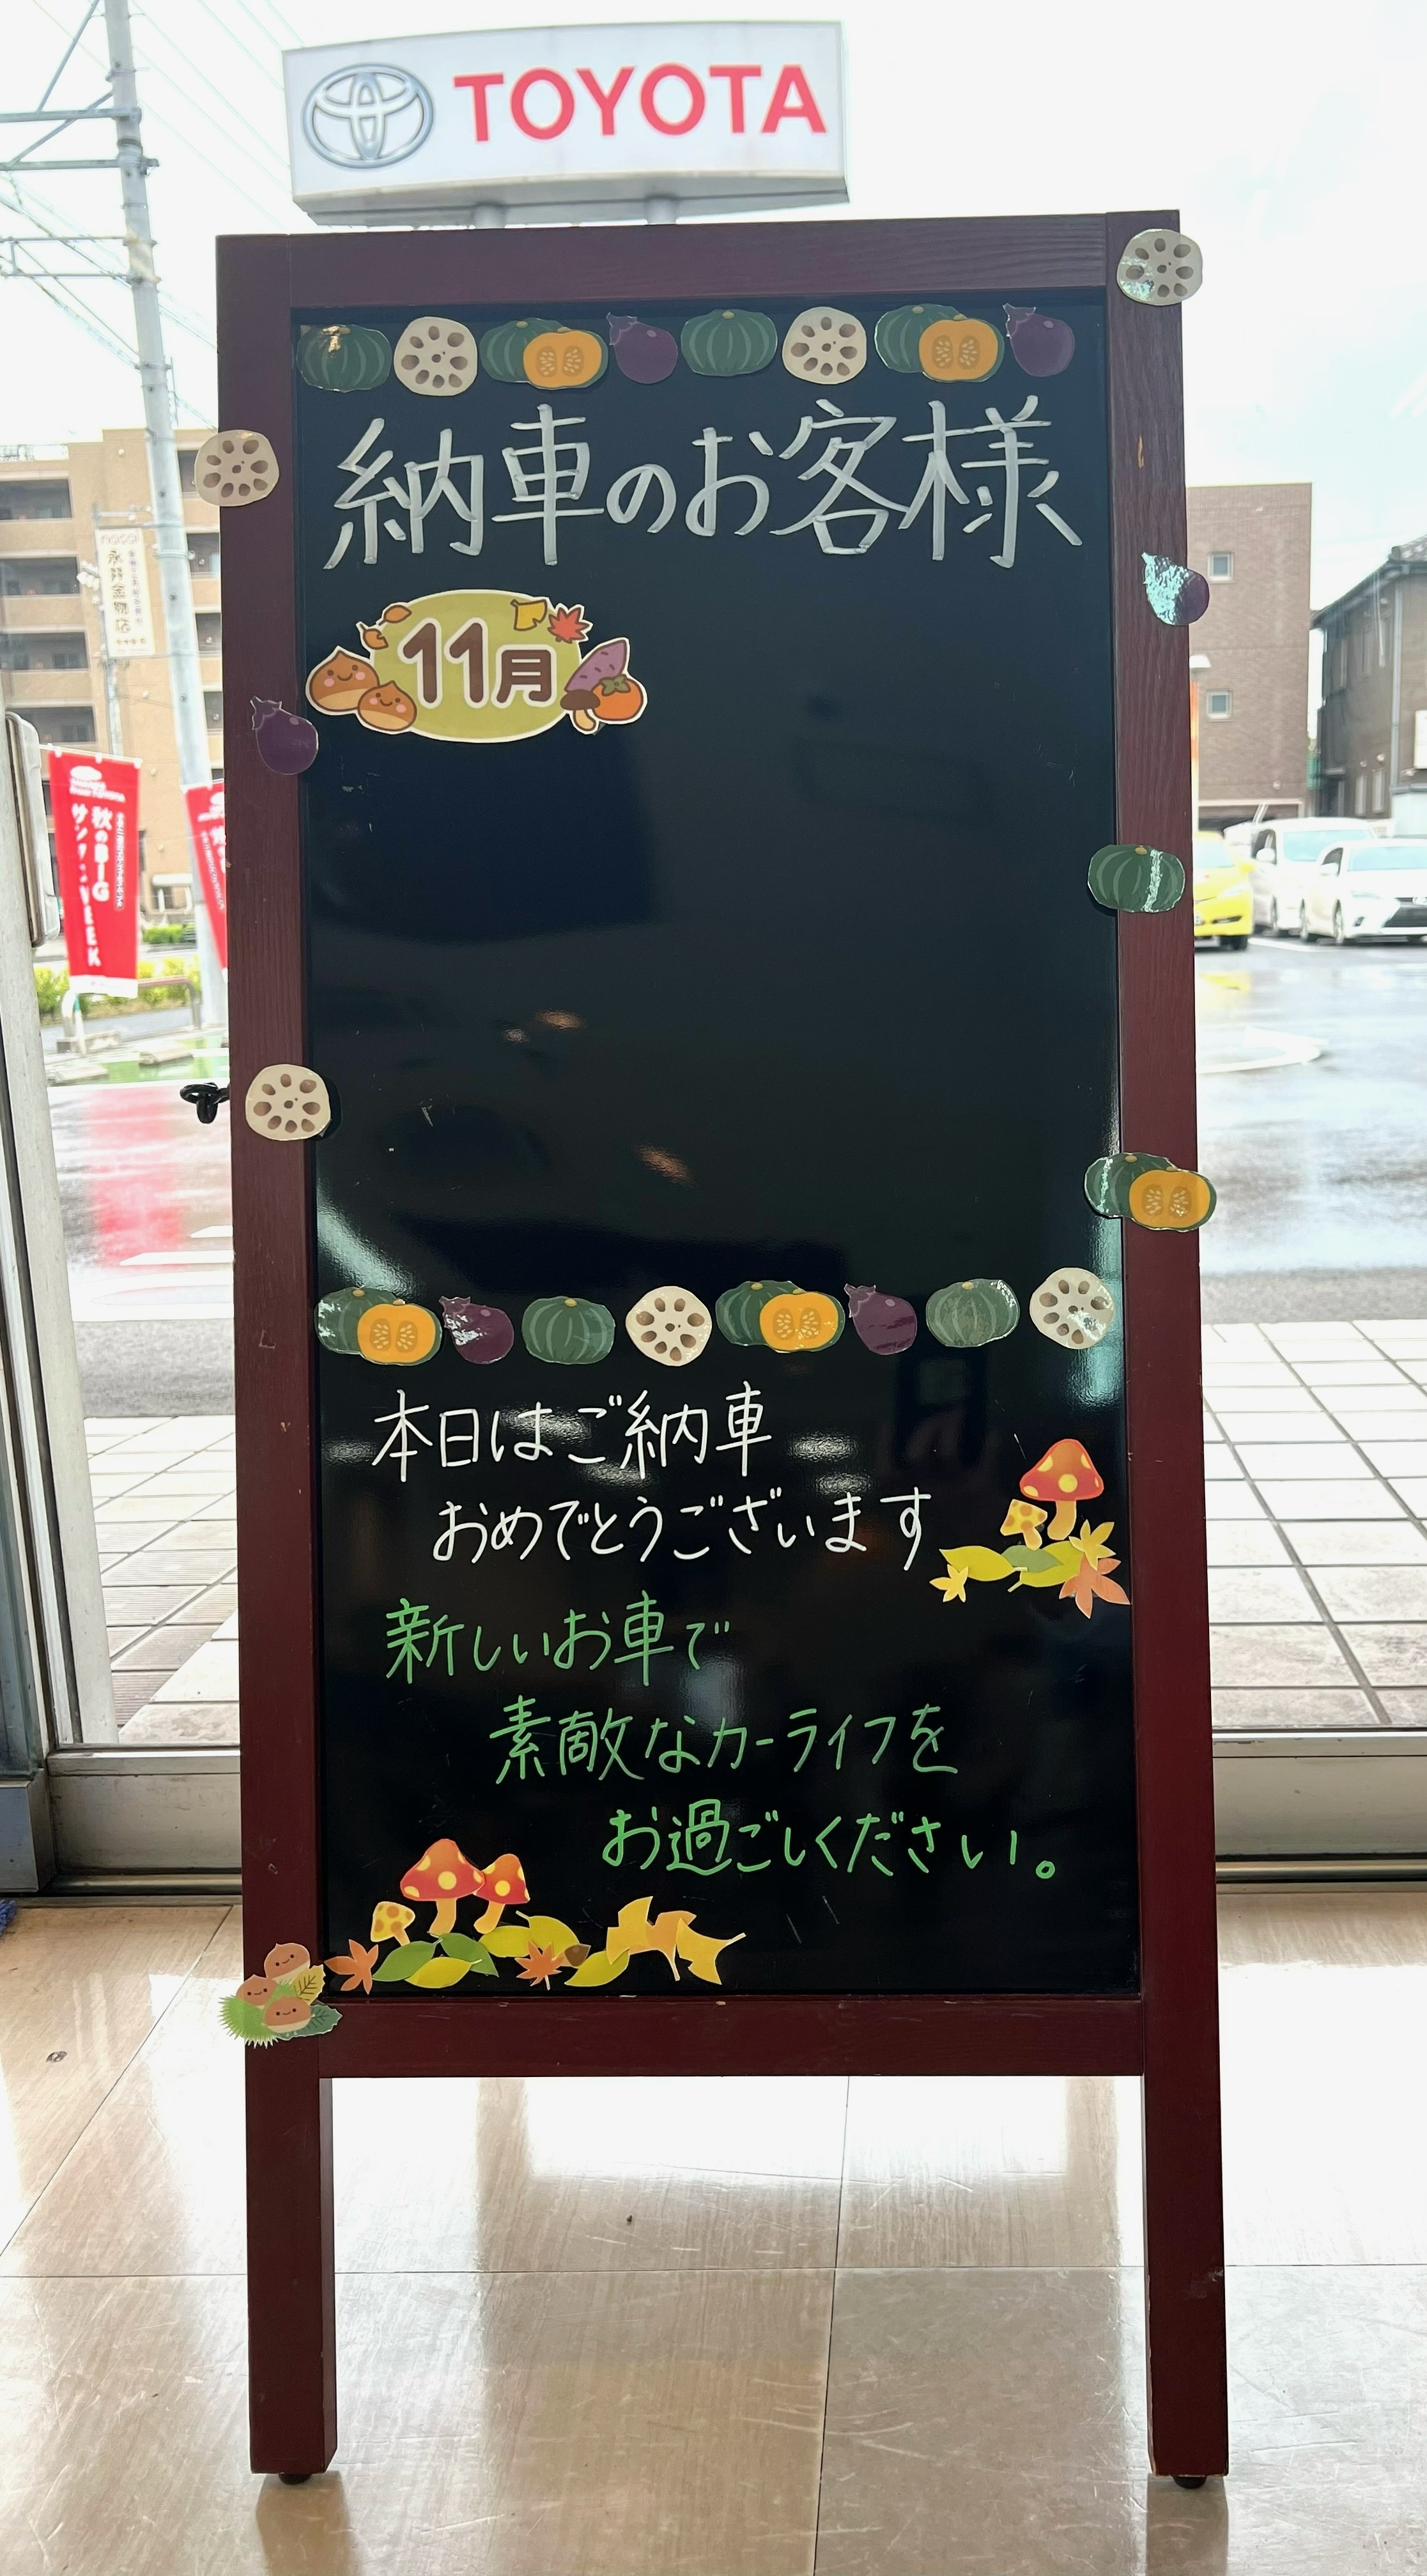 TOYOTA
納車のお客様
11月
本日はご納車
おめでとうございます
新しいお車で
素敵なカーライフを
お過ごしください。
秋のBIG
サンクスWEEK